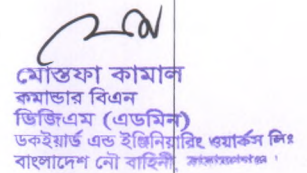 মোস্তফা কামাল
কমান্ডার বিএন
ডিজিএম (এডমিন)
ডকইয়ার্ড এন্ড ইঞ্জিনিয়ারিং ওয়ার্কস লিঃ
বাংলাদেশ নৌ বাহিনী